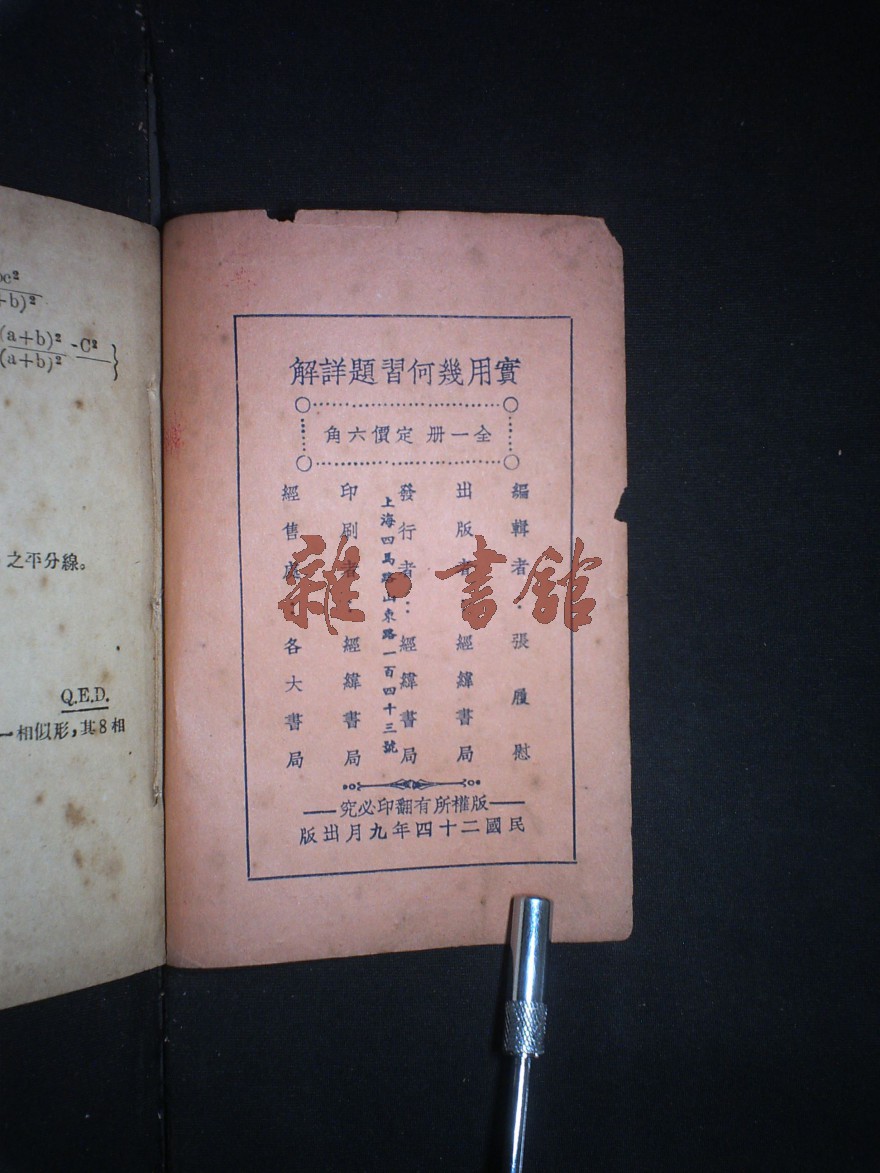 bc²
+b)²
(a+b)² - C²
(a+b)²
之平分線。
Q.E.D.
一相似形,其8相
實用幾何習題詳解
全一册 定價六角
編輯者:張履慰
出版者:經緯書局
發行者:經緯書局
上海四馬路山東路一百四十三號
印刷者:經緯書局
經售處:各大書局
版權所有翻印必究
民國二十四年九月出版
雜·書館